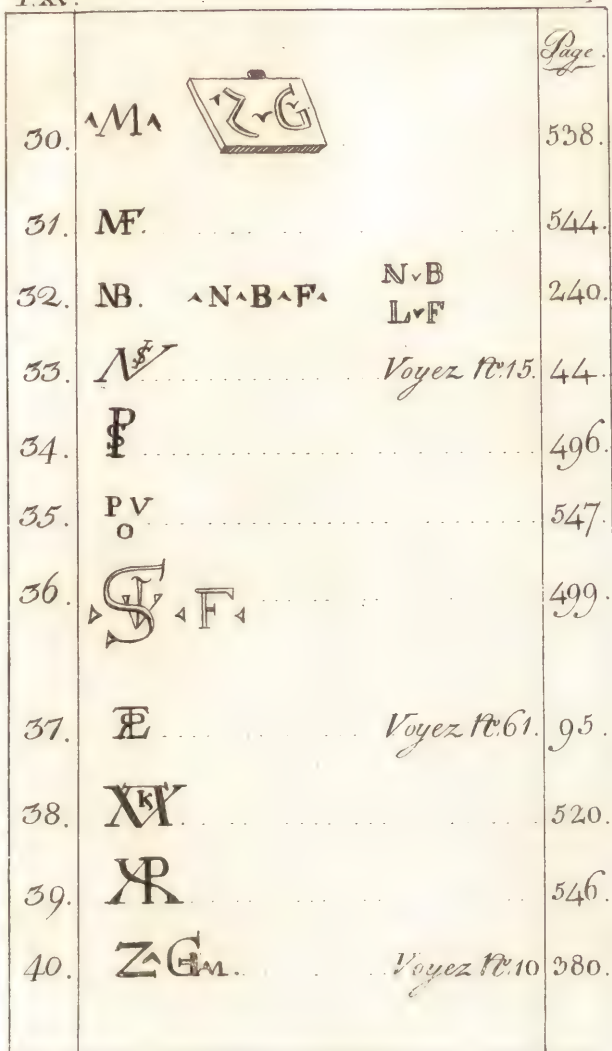 Page.
30. M Z G 538.
31. MF. 544.
32. NB. N B F N B 240.
L F
33. Voyez N.º 15. 44.
34. 496.
35. P V 547.
O
36. F 499.
37. Voyez N.º 61. 95.
38. 520.
39. XR 546.
40. Z G M. Voyez N.º 10 380.